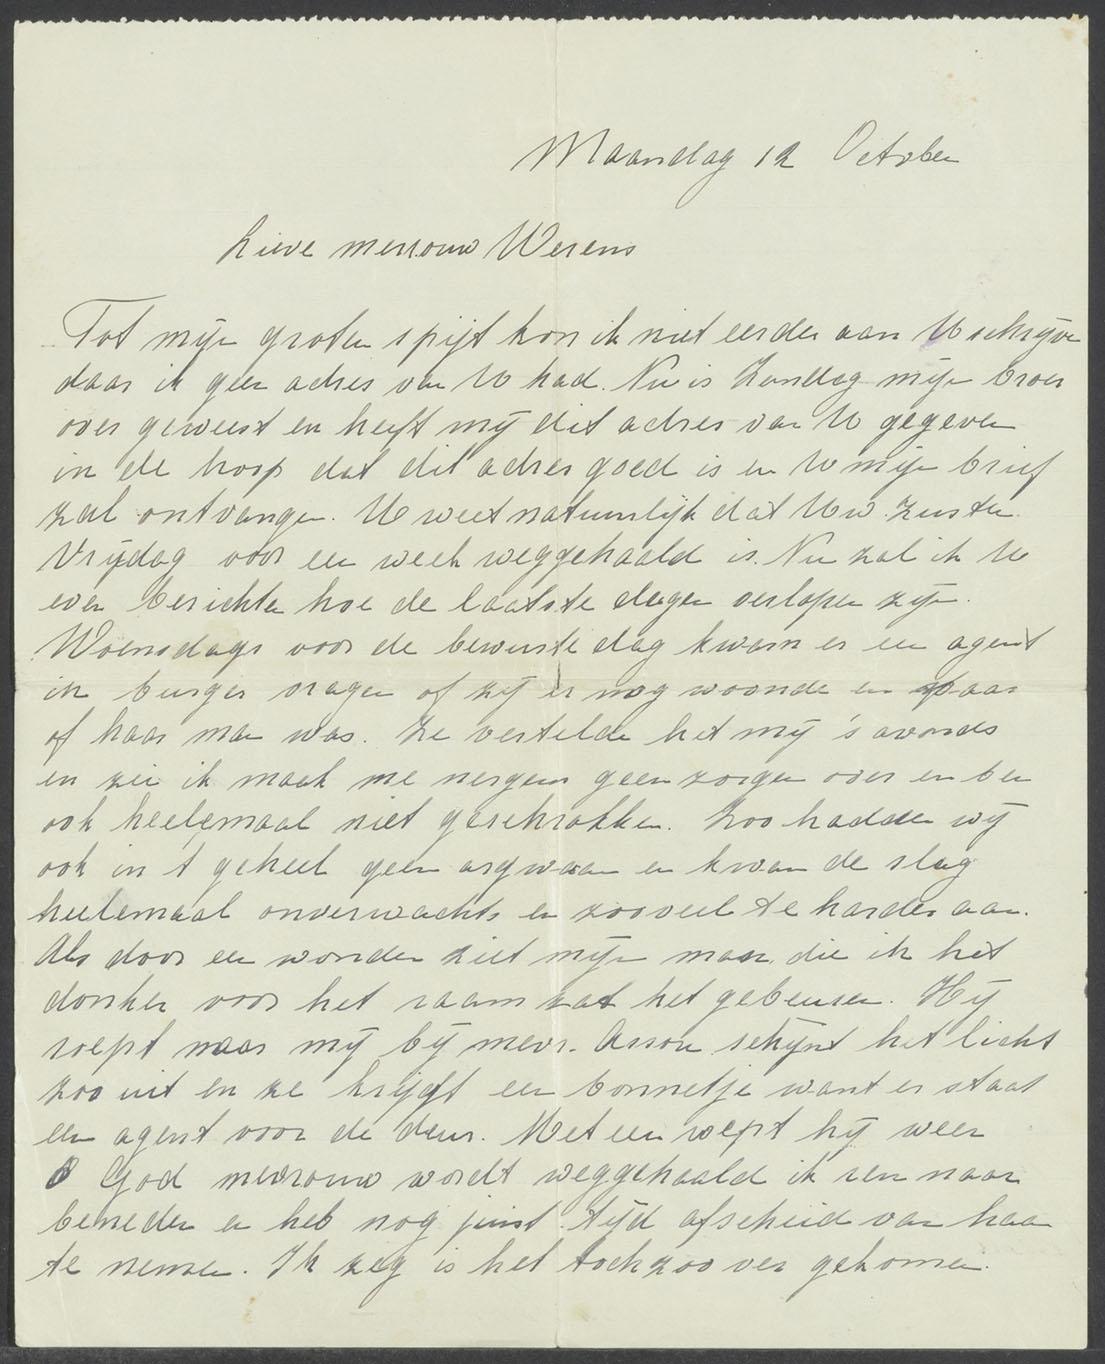 Maandag 12 October
Lieve mevrouw Werens
Tot mijn groten spijt kon ik niet eerder aan U schrijven
daar ik geen adres van U had. Nu is Zondag mijn broer
over geweest en heeft mij dit adres van U gegeven
in de hoop dat dit adres goed is en U mijn brief
zal ontvangen. U weet natuurlijk dat Uw zuster
Vrijdag voor een week weggehaald is. Nu zal ik U
even berichten hoe de laatste dagen verlopen zijn.
Woensdags voor de bewuste dag kwam er een agent
in burger vragen of zij er nog woonde en waar
of haar man was. Ze vertelde het mij 's avonds
en zei ik maak me nergens geen zorgen over en ben
ook heelemaal niet geschrokken. Zoo hadden wij
ook in 't geheel geen argwaan en kwam de slag
heelemaal onverwachts en zooveel te harder aan.
Als door een wonder ziet mijn man die ik het
donker voor het raam zat het gebeuren. Hij
roept naar mij bij mevr. schijnt het licht
zoo uit en ze krijgt een bonnetje want er staat
een agent voor de deur. Met een roept hij weer
O God mevrouw wordt weggehaald ik ren naar
beneden en heb nog juist tijd afscheid van haar
te nemen. Ik zeg is het toch zoo ver gekomen.